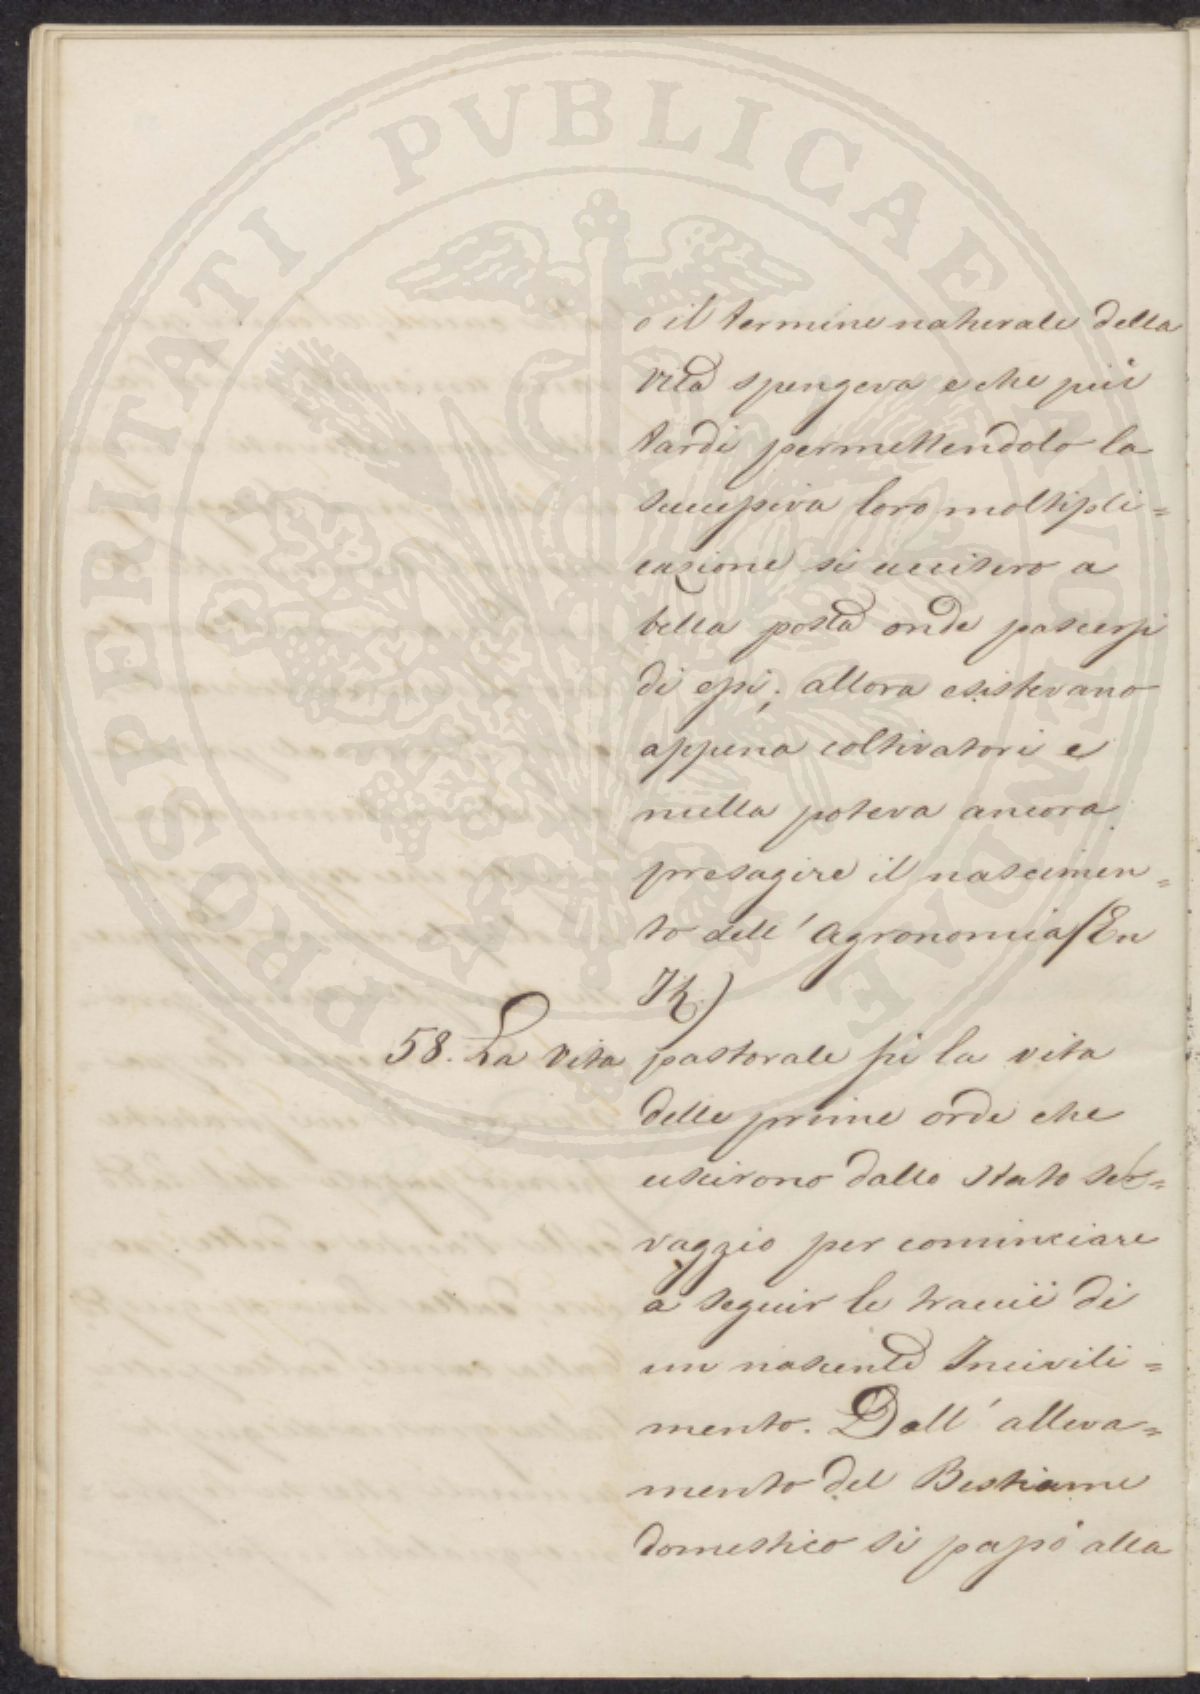 PROSPERITATI PVBLICAE AVGENDAE
o il termine naturale della
vita spengeva e che più
tardi permettendolo la
successiva loro moltipli=
cazione si uccisero a
bella posta onde pascersi
di essi; allora esistevano
appena coltivatori e
nulla poteva ancora
presagire il nascimen=
to dell' Agronomia (En
58. La vita pastorale fù la vita
delle prime orde che
uscirono dallo Stato sel=
vaggio per cominciare
a seguir le traccie di
un nascente Incivili=
mento. Dall' alleva=
mento del Bestiame
domestico si passò alla